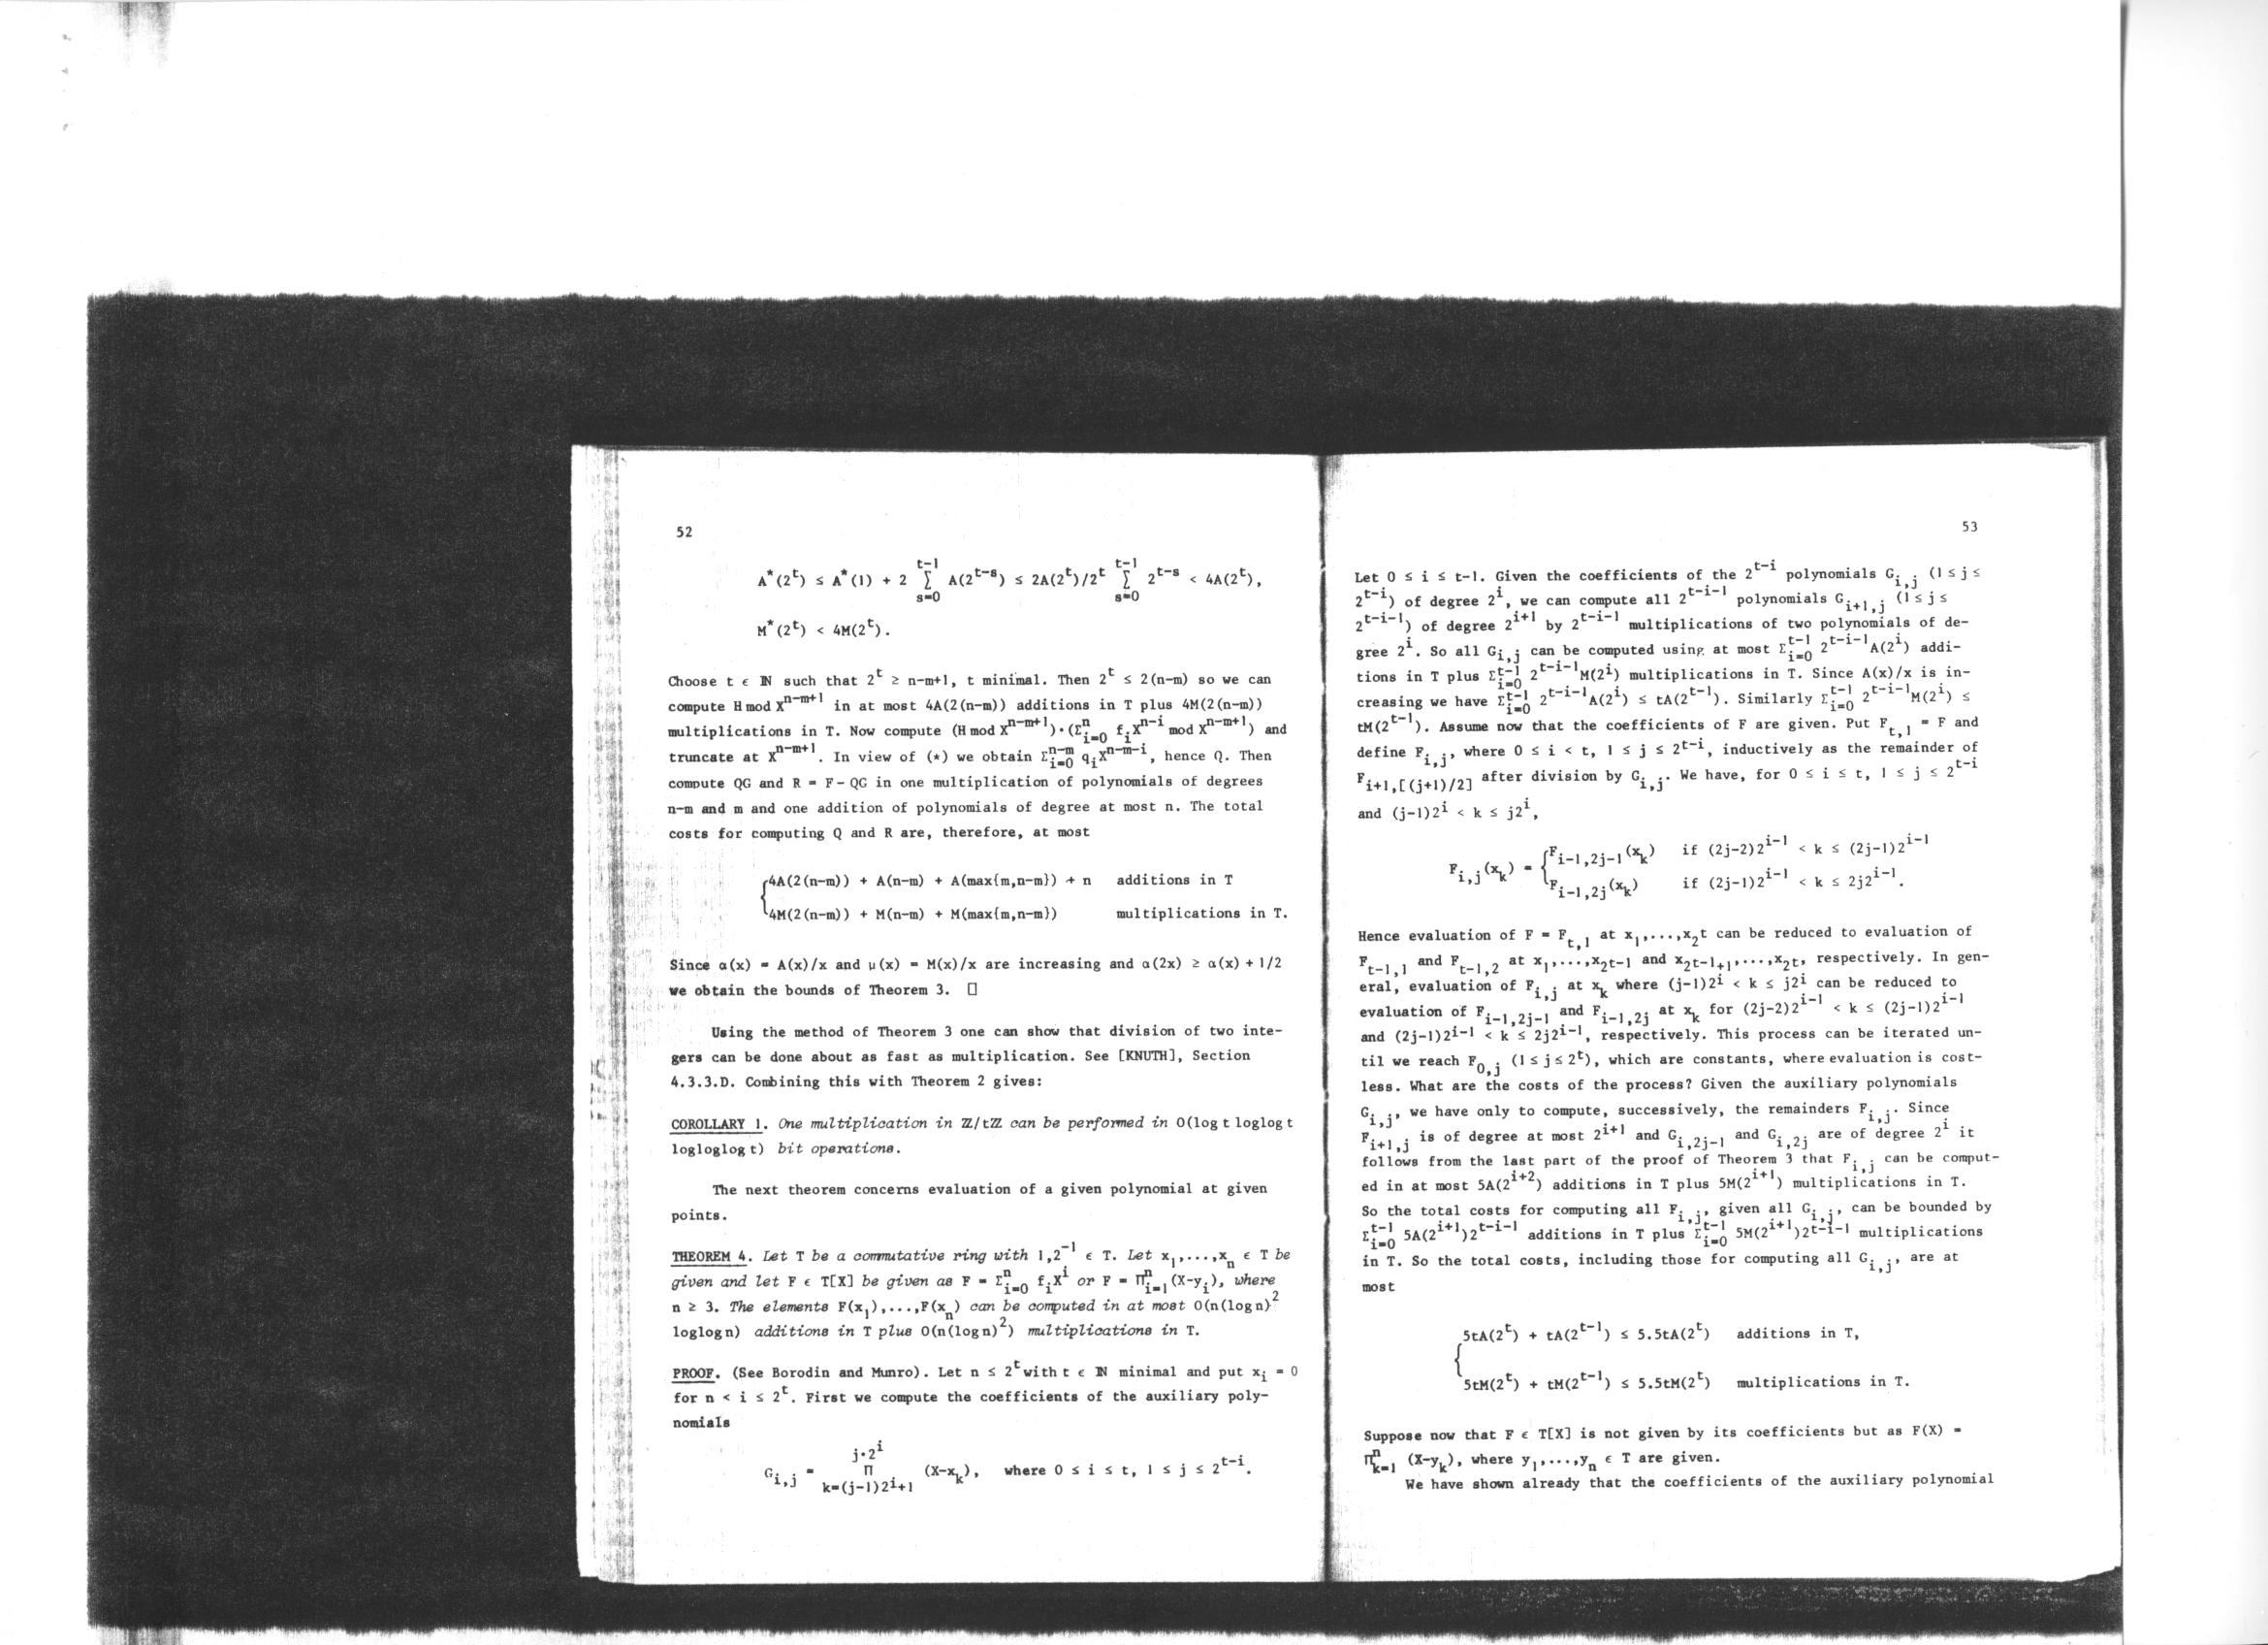 52
A*(2^t) ≤ A*(1) + 2 Σ_{s=0}^{t-1} A(2^{t-s}) ≤ 2A(2^t)/2^t Σ_{s=0}^{t-1} 2^{t-s} < 4A(2^t),
M*(2^t) < 4M(2^t).
Choose t ϵ ℕ such that 2^t ≥ n-m+1, t minimal. Then 2^t ≤ 2(n-m) so we can
compute H mod X^{n-m+1} in at most 4A(2(n-m)) additions in T plus 4M(2(n-m))
multiplications in T. Now compute (H mod X^{n-m+1})·(Σ_{i=0}^n f_i X^{n-i} mod X^{n-m+1}) and
truncate at X^{n-m+1}. In view of (*) we obtain Σ_{i=0}^{n-m} q_i X^{n-m-i}, hence Q. Then
compute QG and R = F - QG in one multiplication of polynomials of degrees
n-m and m and one addition of polynomials of degree at most n. The total
costs for computing Q and R are, therefore, at most
{4A(2(n-m)) + A(n-m) + A(max{m,n-m}) + n additions in T
4M(2(n-m)) + M(n-m) + M(max{m,n-m}) multiplications in T.
Since α(x) = A(x)/x and μ(x) = M(x)/x are increasing and α(2x) ≥ α(x) + 1/2
we obtain the bounds of Theorem 3. □
Using the method of Theorem 3 one can show that division of two inte-
gers can be done about as fast as multiplication. See [KNUTH], Section
4.3.3.D. Combining this with Theorem 2 gives:
COROLLARY 1. One multiplication in ℤ/tℤ can be performed in O(log t loglog t
logloglog t) bit operations.
The next theorem concerns evaluation of a given polynomial at given
points.
THEOREM 4. Let T be a commutative ring with 1,2^{-1} ϵ T. Let x_1,...,x_n ϵ T be
given and let F ϵ T[X] be given as F = Σ_{i=0}^n f_i X^i or F = Π_{i=1}^n (X-y_i), where
n ≥ 3. The elements F(x_1),...,F(x_n) can be computed in at most O(n(log n)^2
loglog n) additions in T plus O(n(log n)^2) multiplications in T.
PROOF. (See Borodin and Munro). Let n ≤ 2^t with t ϵ ℕ minimal and put x_i = 0
for n < i ≤ 2^t. First we compute the coefficients of the auxiliary poly-
nomials
G_{i,j} = Π_{k=(j-1)2^i+1}^{j·2^i} (X-x_k), where 0 ≤ i ≤ t, 1 ≤ j ≤ 2^{t-i}.
53
Let 0 ≤ i ≤ t-1. Given the coefficients of the 2^{t-i} polynomials G_{i,j} (1 ≤ j ≤
2^{t-i}) of degree 2^i, we can compute all 2^{t-i-1} polynomials G_{i+1,j} (1 ≤ j ≤
2^{t-i-1}) of degree 2^{i+1} by 2^{t-i-1} multiplications of two polynomials of de-
gree 2^i. So all G_{i,j} can be computed using at most Σ_{i=0}^{t-1} 2^{t-i-1}A(2^i) addi-
tions in T plus Σ_{i=0}^{t-1} 2^{t-i-1}M(2^i) multiplications in T. Since A(x)/x is in-
creasing we have Σ_{i=0}^{t-1} 2^{t-i-1}A(2^i) ≤ tA(2^{t-1}). Similarly Σ_{i=0}^{t-1} 2^{t-i-1}M(2^i) ≤
tM(2^{t-1}). Assume now that the coefficients of F are given. Put F_{t,1} = F and
define F_{i,j}, where 0 ≤ i < t, 1 ≤ j ≤ 2^{t-i}, inductively as the remainder of
F_{i+1,[(j+1)/2]} after division by G_{i,j}. We have, for 0 ≤ i ≤ t, 1 ≤ j ≤ 2^{t-i}
and (j-1)2^i < k ≤ j2^i,
F_{i,j}(x_k) = {F_{i-1,2j-1}(x_k) if (2j-2)2^{i-1} < k ≤ (2j-1)2^{i-1}
F_{i-1,2j}(x_k) if (2j-1)2^{i-1} < k ≤ 2j2^{i-1}.
Hence evaluation of F = F_{t,1} at x_1,...,x_{2^t} can be reduced to evaluation of
F_{t-1,1} and F_{t-1,2} at x_1,...,x_{2^{t-1}} and x_{2^{t-1}+1},...,x_{2^t}, respectively. In gen-
eral, evaluation of F_{i,j} at x_k where (j-1)2^i < k ≤ j2^i can be reduced to
evaluation of F_{i-1,2j-1} and F_{i-1,2j} at x_k for (2j-2)2^{i-1} < k ≤ (2j-1)2^{i-1}
and (2j-1)2^{i-1} < k ≤ 2j2^{i-1}, respectively. This process can be iterated un-
til we reach F_{0,j} (1 ≤ j ≤ 2^t), which are constants, where evaluation is cost-
less. What are the costs of the process? Given the auxiliary polynomials
G_{i,j}, we have only to compute, successively, the remainders F_{i,j}. Since
F_{i+1,j} is of degree at most 2^{i+1} and G_{i,2j-1} and G_{i,2j} are of degree 2^i it
follows from the last part of the proof of Theorem 3 that F_{i,j} can be comput-
ed in at most 5A(2^{i+2}) additions in T plus 5M(2^{i+1}) multiplications in T.
So the total costs for computing all F_{i,j}, given all G_{i,j}, can be bounded by
Σ_{i=0}^{t-1} 5A(2^{i+1})2^{t-i-1} additions in T plus Σ_{i=0}^{t-1} 5M(2^{i+1})2^{t-i-1} multiplications
in T. So the total costs, including those for computing all G_{i,j}, are at
most
{5tA(2^t) + tA(2^{t-1}) ≤ 5.5tA(2^t) additions in T,
5tM(2^t) + tM(2^{t-1}) ≤ 5.5tM(2^t) multiplications in T.
Suppose now that F ϵ T[X] is not given by its coefficients but as F(X) =
Π_{k=1}^n (X-y_k), where y_1,...,y_n ϵ T are given.
We have shown already that the coefficients of the auxiliary polynomial